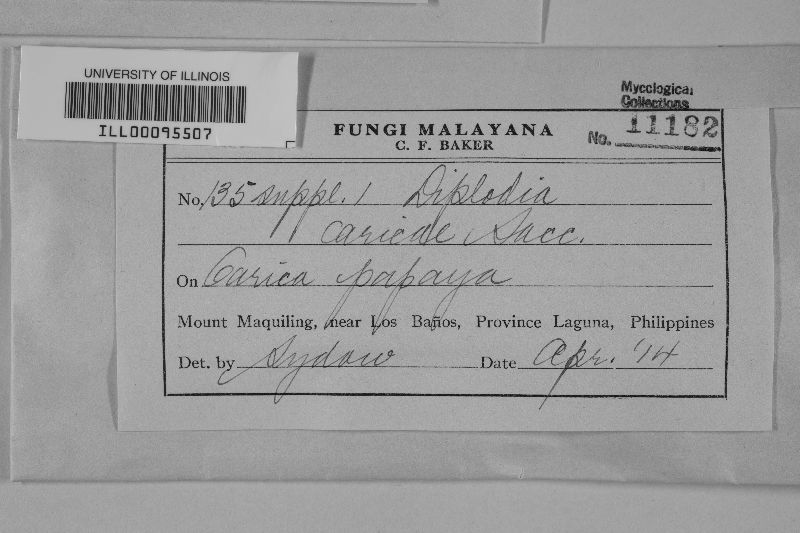 UNIVERSITY OF ILLINOIS
ILL00095507
Mycological
Collections
No. 11182
FUNGI MALAYANA
C. F. BAKER
No. 135 suppl. 1 Diplodia
caricae Sacc.
On Carica papaya
Mount Maquiling, near Los Baños, Province Laguna, Philippines
Det. by Sydow Date Apr. '14